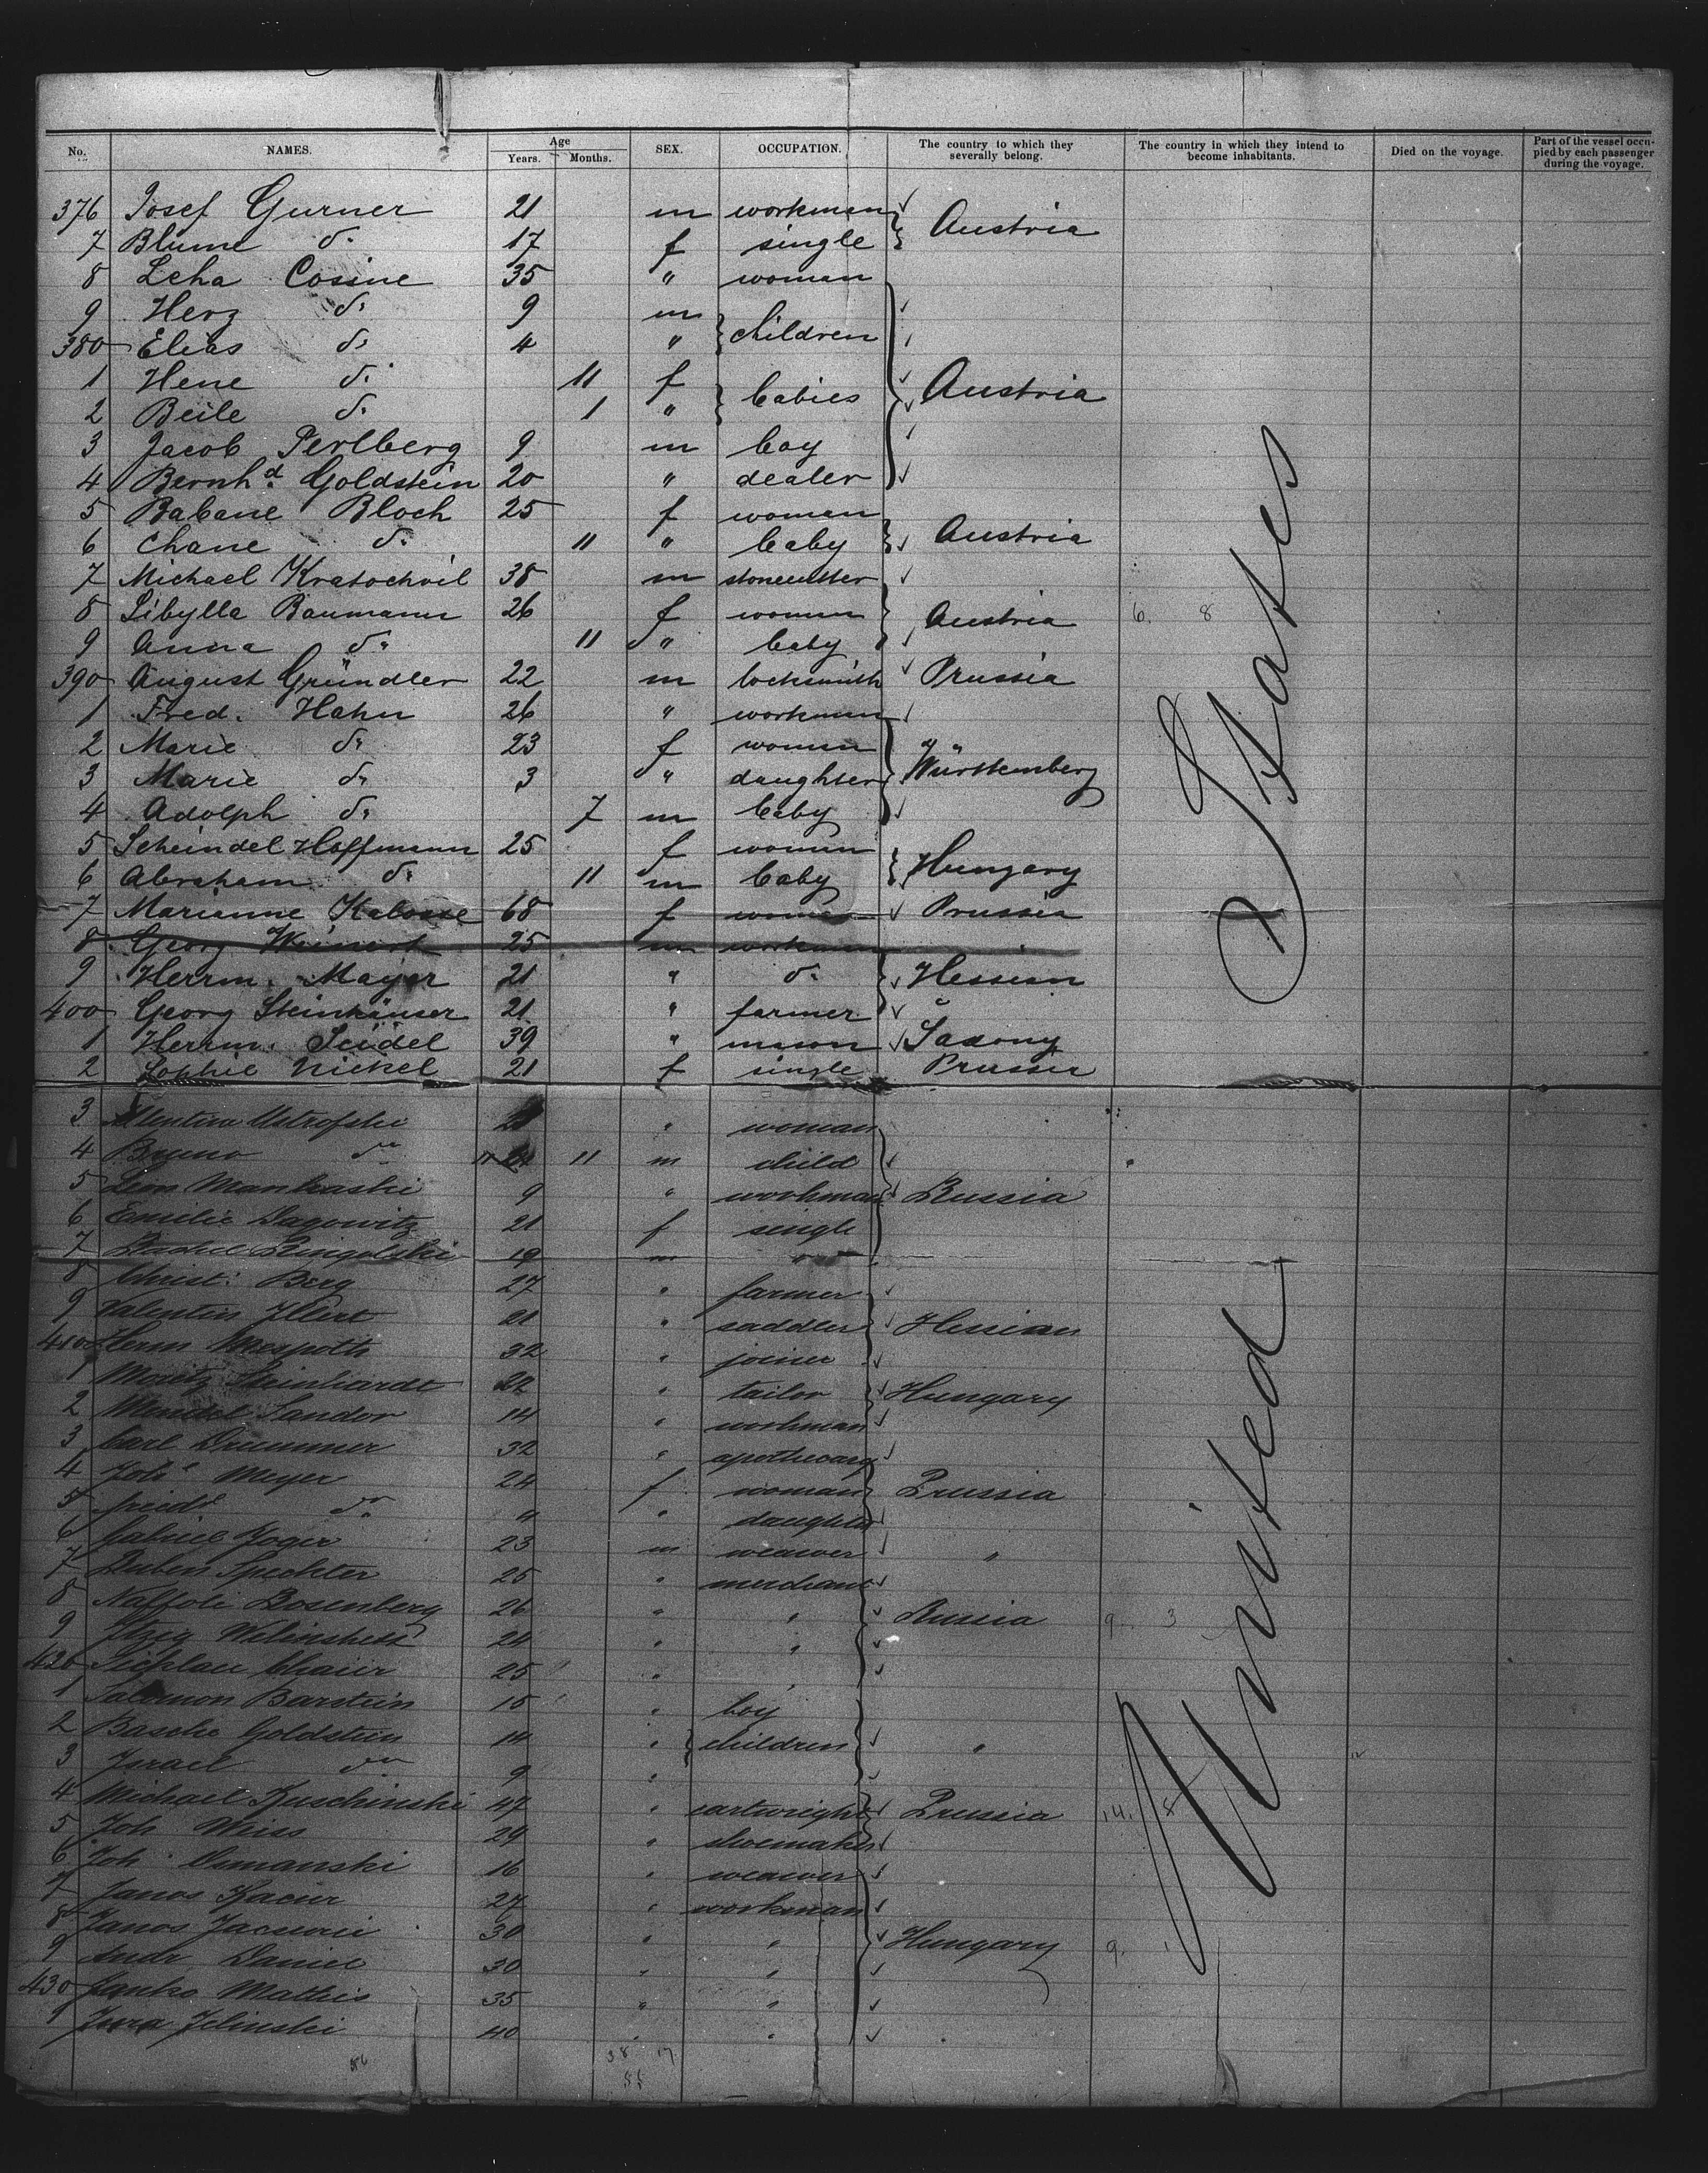 No. NAMES. Age Years. Months. SEX. OCCUPATION. The country to which they severally belong. The country in which they intend to become inhabitants. Died on the voyage. Part of the vessel occupied by each passenger during the voyage.
376 Josef Gurner 21 m workman Austria
7 Blume do 17 f single
8 Leha Cosine 35 " woman
9 Herz do 9 m children
380 Elias do 4 "
1 Hene do 11 f babies Austria
2 Beile do 1 "
3 Jacob Perlberg 9 m boy
4 Bernhd. Goldstein 20 " dealer
5 Babane Bloch 25 f woman Austria
6 Chane do 11 " baby
7 Michael Kratochvil 38 m stonecutter
8 Sibylla Baumann 26 f woman Austria 6. 8
9 Anna do 11 " baby
390 August Gründler 22 m locksmith Prussia
1 Fred. Hahn 26 " workman
2 Marie do 23 f woman "
3 Marie do 3 " daughter Württemberg
4 Adolph do 7 m baby
5 Scheindel Hoffmann 25 f woman Hungary
6 Abraham do 11 m baby
7 Marianne 68 f woman Prussia
8 Georg 25 m workman
9 Herrm. Mayer 21 " do Hessian
400 Georg Steinhäuser 21 " farmer
1 Herrm. Seidel 39 " mason Saxony
2 Sophie Nickel 21 f single Prussia
3 " woman
4 Bruno do 11 m child
5 Leon 9 " workman Russia
6 Emilie 21 f single
7 19 m "
8 Christ: Berg 27 " farmer
9 Valentin 21 " saddler Hessian
410 Herm 32 " joiner
1 Moritz Steinhardt 22 " tailor Hungary
2 Mendel Sandor 14 " workman
3 Carl Drummer 32 " apothecary
4 Joh. Meyer 24 f woman Prussia
5 do " daughter
6 23 m weawer "
7 Ruben Spechter 25 " merchant
8 Naftoli Rosenberg 26 " " Russia 9. 3
9 Itzig 24 " "
420 25 "
1 Salomon Barstein 15 " boy
2 Basche Goldstein 14 " children "
3 Israel do 9 "
4 Michael Kuschinski 47 " cartwright Prussia 14. 8
5 Joh Weiss 29 " shoemaker
6 Joh. 16 " weawer
7 Janos 27 " workman
8 Janos 30 " " Hungary 9. 1
9 Andr. Daniel 30 " "
430 Janko Mathis 35 " "
1 Jura Jelinski 40 " "
38 17
United States